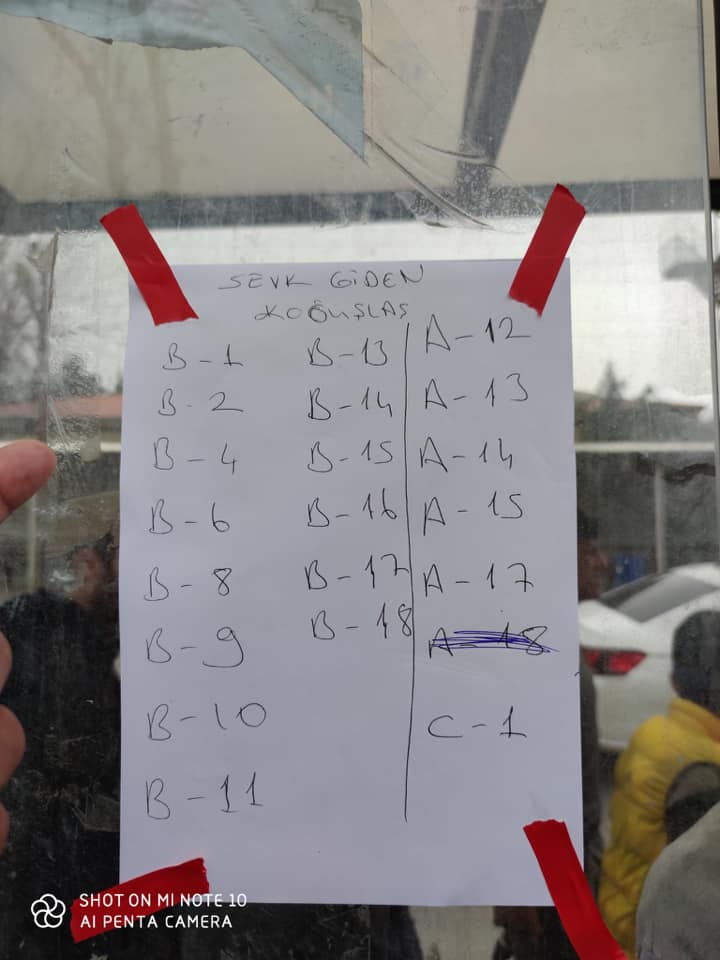 SEVK GİDEN
KOĞUŞLAS
B-1
B-2
B-4
B-6
B-8
B-9
B-10
B-11
B-13
B-14
B-15
B-16
B-17
B-18
A-12
A-13
A-14
A-15
A-17
A-18
C-1
SHOT ON MI NOTE 10
AI PENTA CAMERA